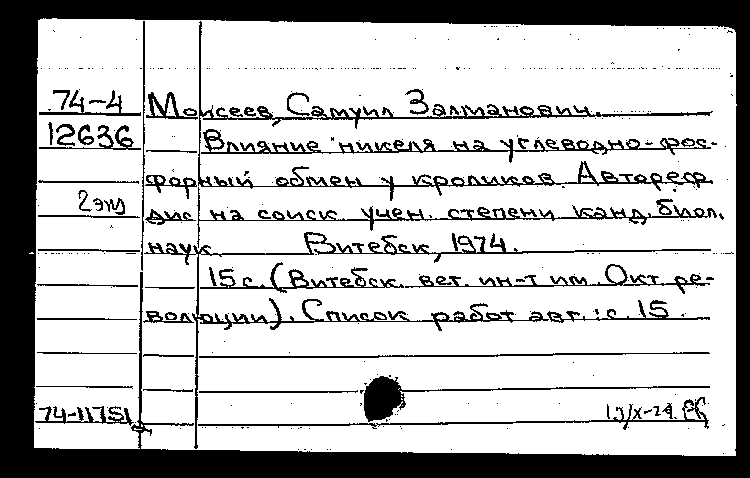 74-4 Моисеев, Самуил Залманович.
12636 Влияние никеля на углеводно-фос-
форный обмен у кроликов. Автореф.
2 экз дис на соиск. учен. степени канд. биол.
наук. Витебск, 1974.
15 с. (Витебск. вет. ин-т им. Окт. ре-
волюции). Список работ авт.: с. 15.
74-11751